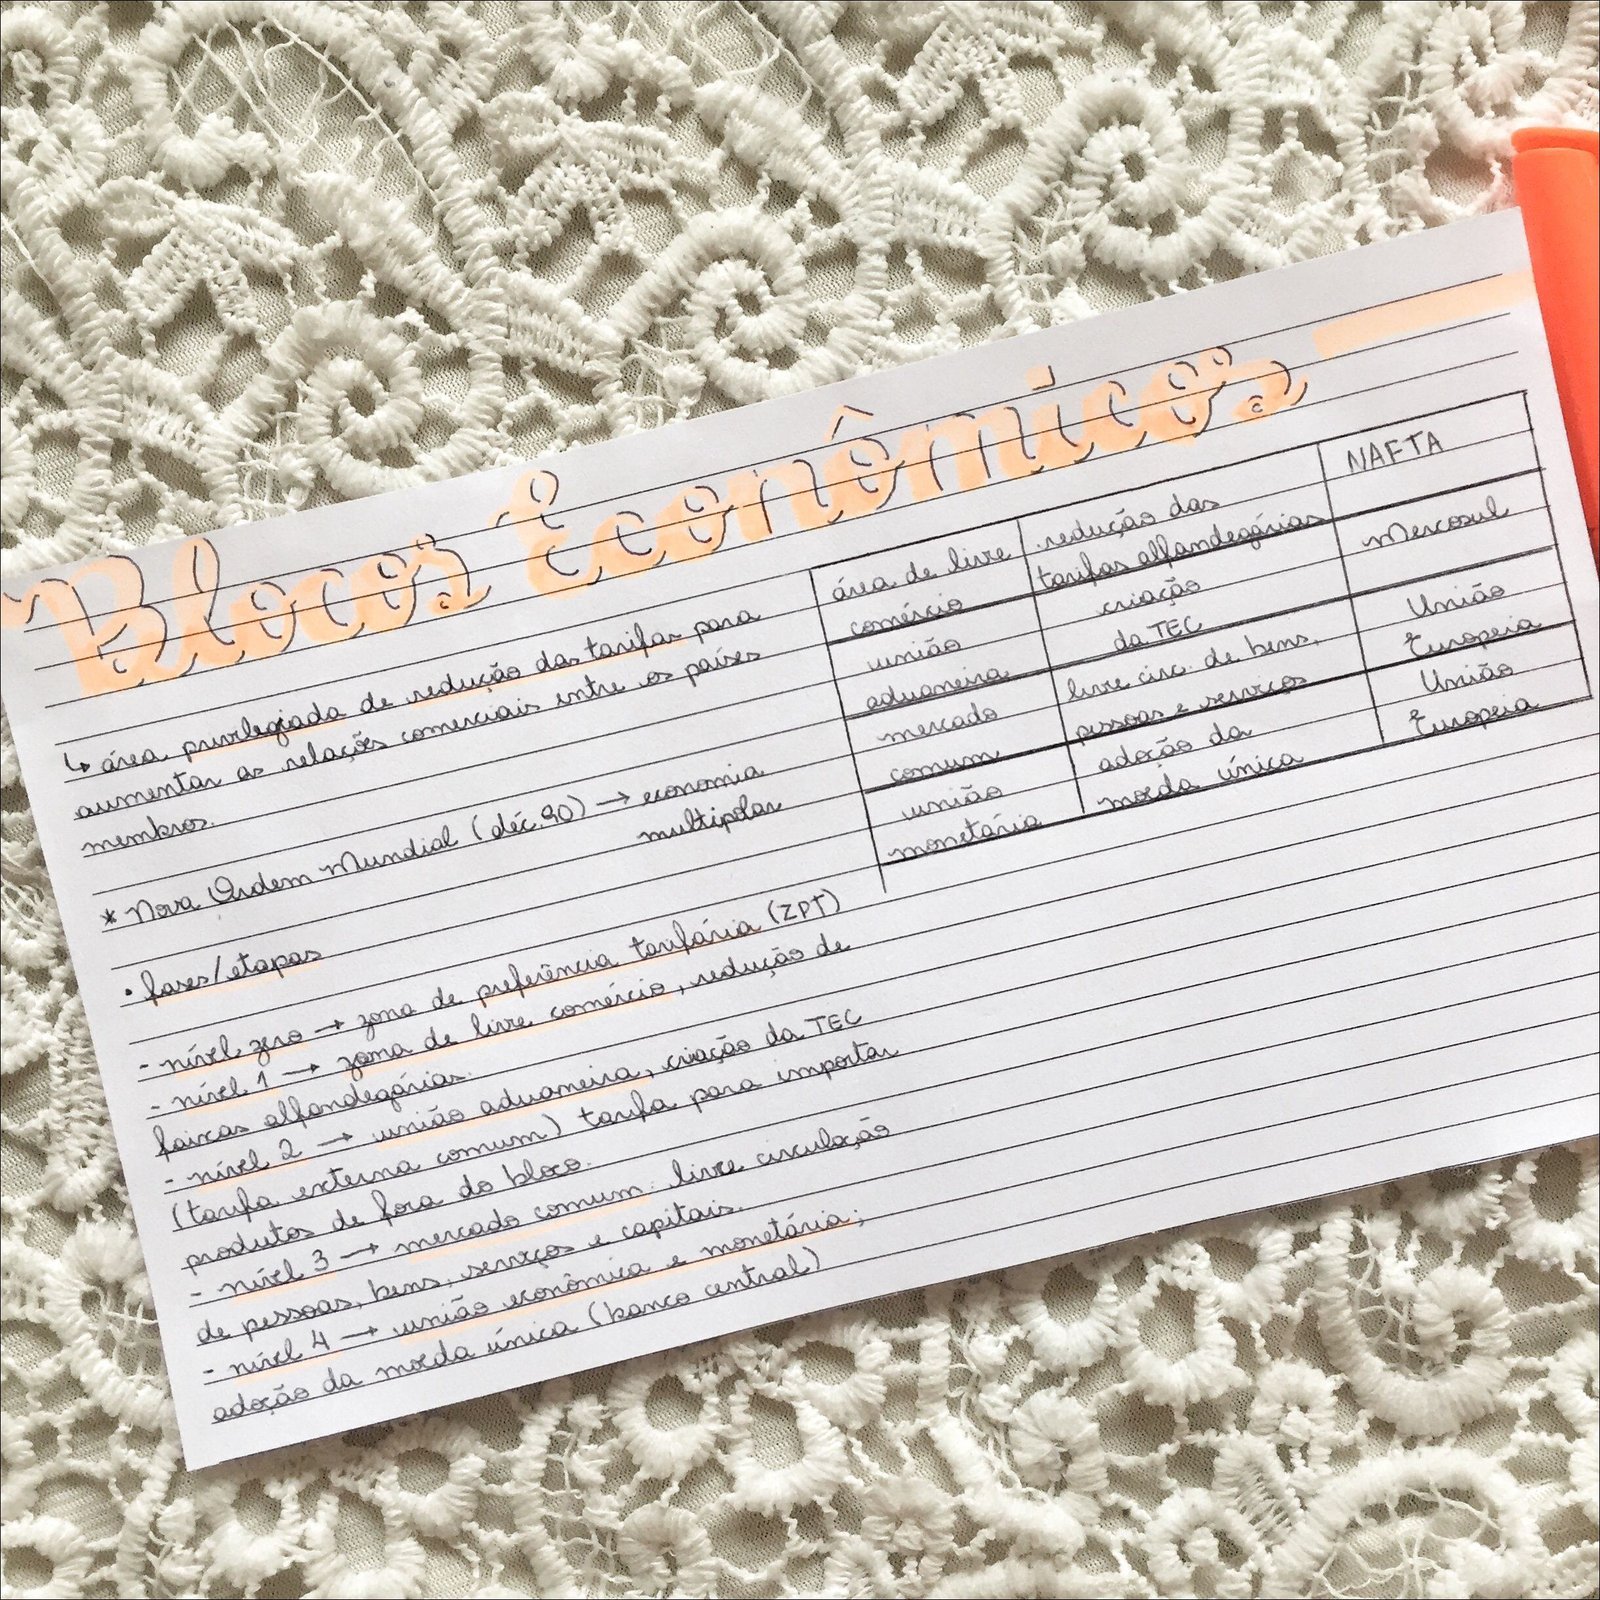 Blocos Econômicos
↳ área privilegiada de redução das tarifas para
aumentar as relações comerciais entre os países
membros.
* Nova Ordem Mundial (déc. 90) → economia
multipolar
• fases/etapas
- nível zero → zona de preferência tarifária (ZPT)
- nível 1 → zona de livre comércio, redução de
faixas alfandegárias.
- nível 2 → união aduaneira, criação da TEC
(tarifa externa comum) tarifa para importar
produtos de fora do bloco.
- nível 3 → mercado comum: livre circulação
de pessoas, bens, serviços e capitais.
- nível 4 → união econômica e monetária;
adoção da moeda única (banco central)
área de livre
comércio
redução das
tarifas alfandegárias
NAFTA
união
aduaneira
criação
da TEC
Mercosul
mercado
comum
livre circ. de bens,
pessoas e serviços
União
Europeia
união
monetária
adoção da
moeda única
União
Europeia